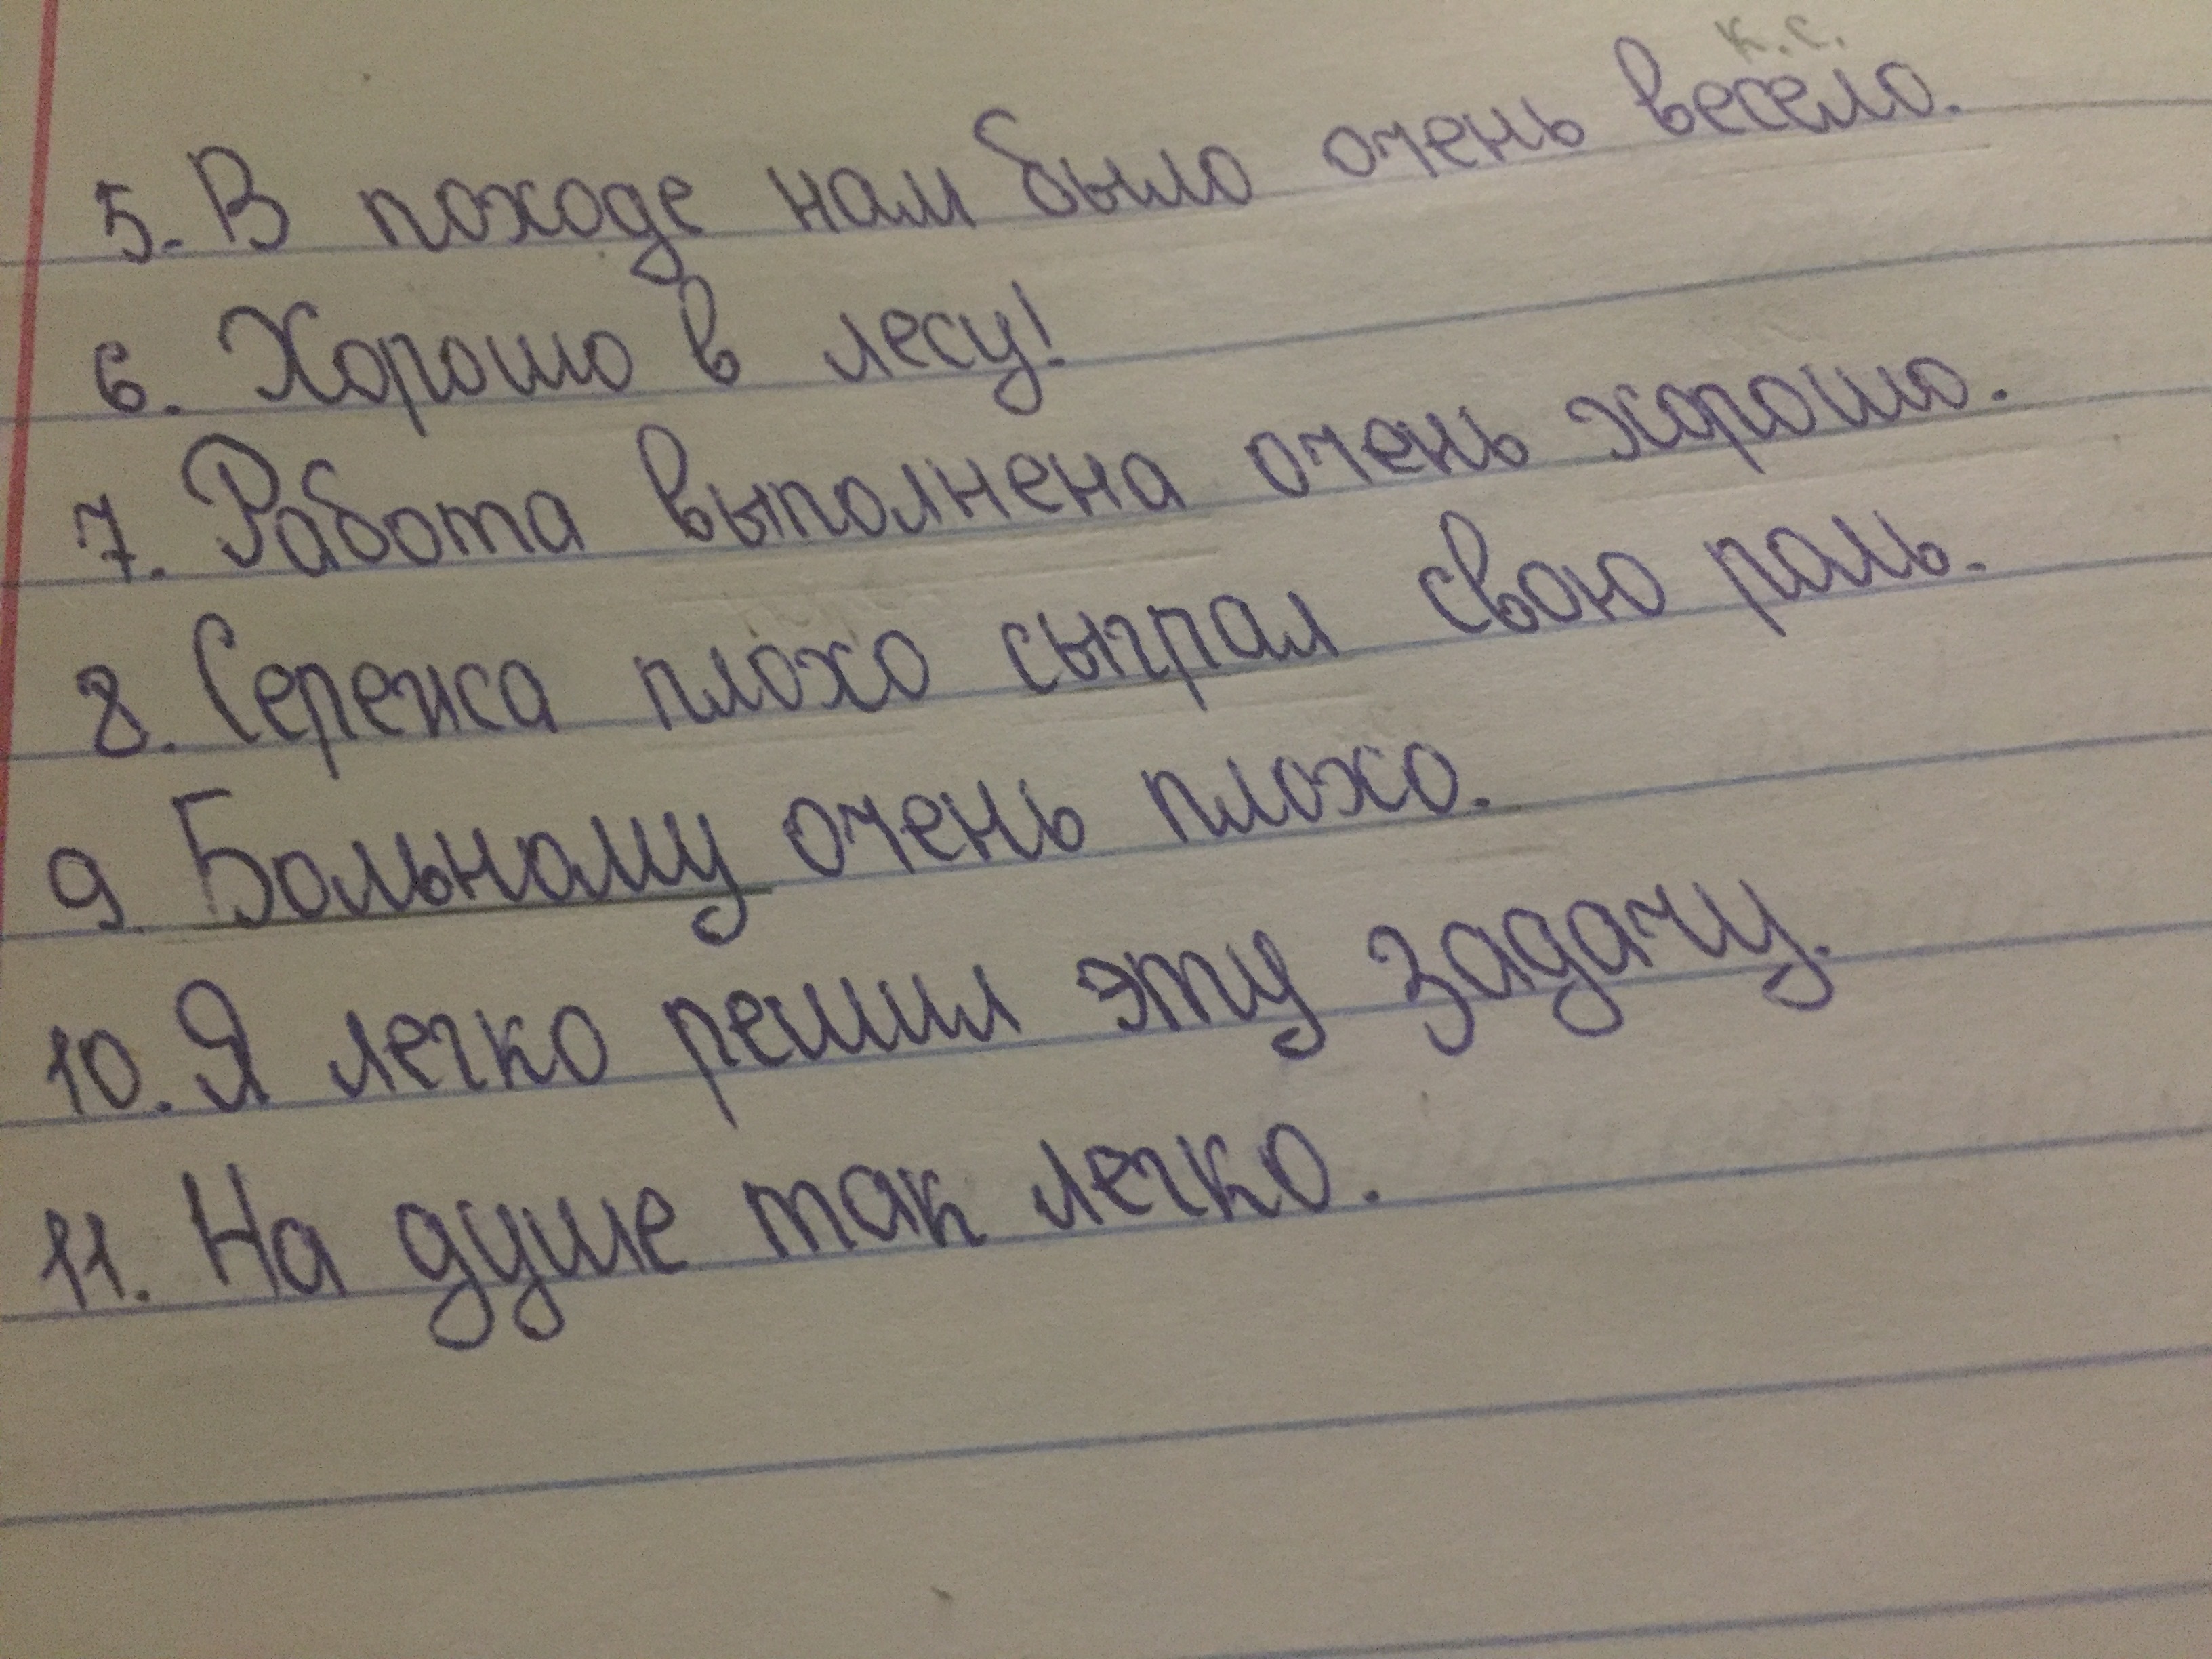 к.с.
5. В походе нам было очень весело.
6. Хорошо в лесу!
7. Работа выполнена очень хорошо.
8. Сережа плохо сыграл свою роль.
9. Больному очень плохо.
10. Я легко решил эту задачу.
11. На душе так легко.